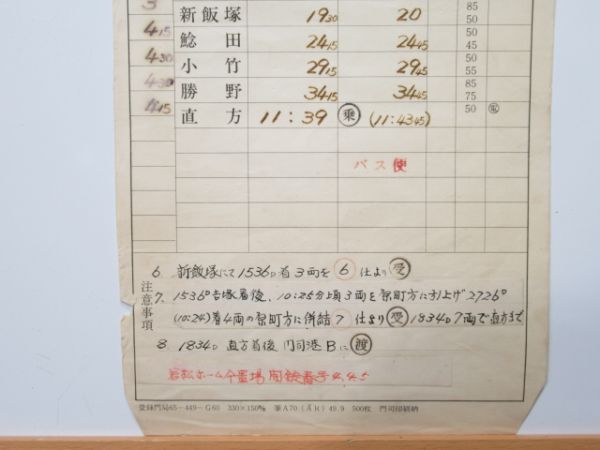 3
85
50
新飯塚 19 30 20
4 15
50
45
鯰田 24 15 24 45
4 30
50
55
小竹 29 15 29 45
4 30
85
75
勝野 34 15 34 45
4 15
50
直方 11:39 乗 (11:43 45)
バス便
注意事項
6. 新飯塚にて1536D着3両を6仕より受
7. 1536D吉塚着後、10:25分頃3両を祭町方に引上げ2726D
(10:24)着4両の祭町方に併結7仕より受1834D7両で直方まで
8. 1834D直方着後門司港Bに渡
若松ホーム
番号4.45
登録門局65-449-G60 330×150% 筆A70(ĀR)49.9 500枚 門司印刷納